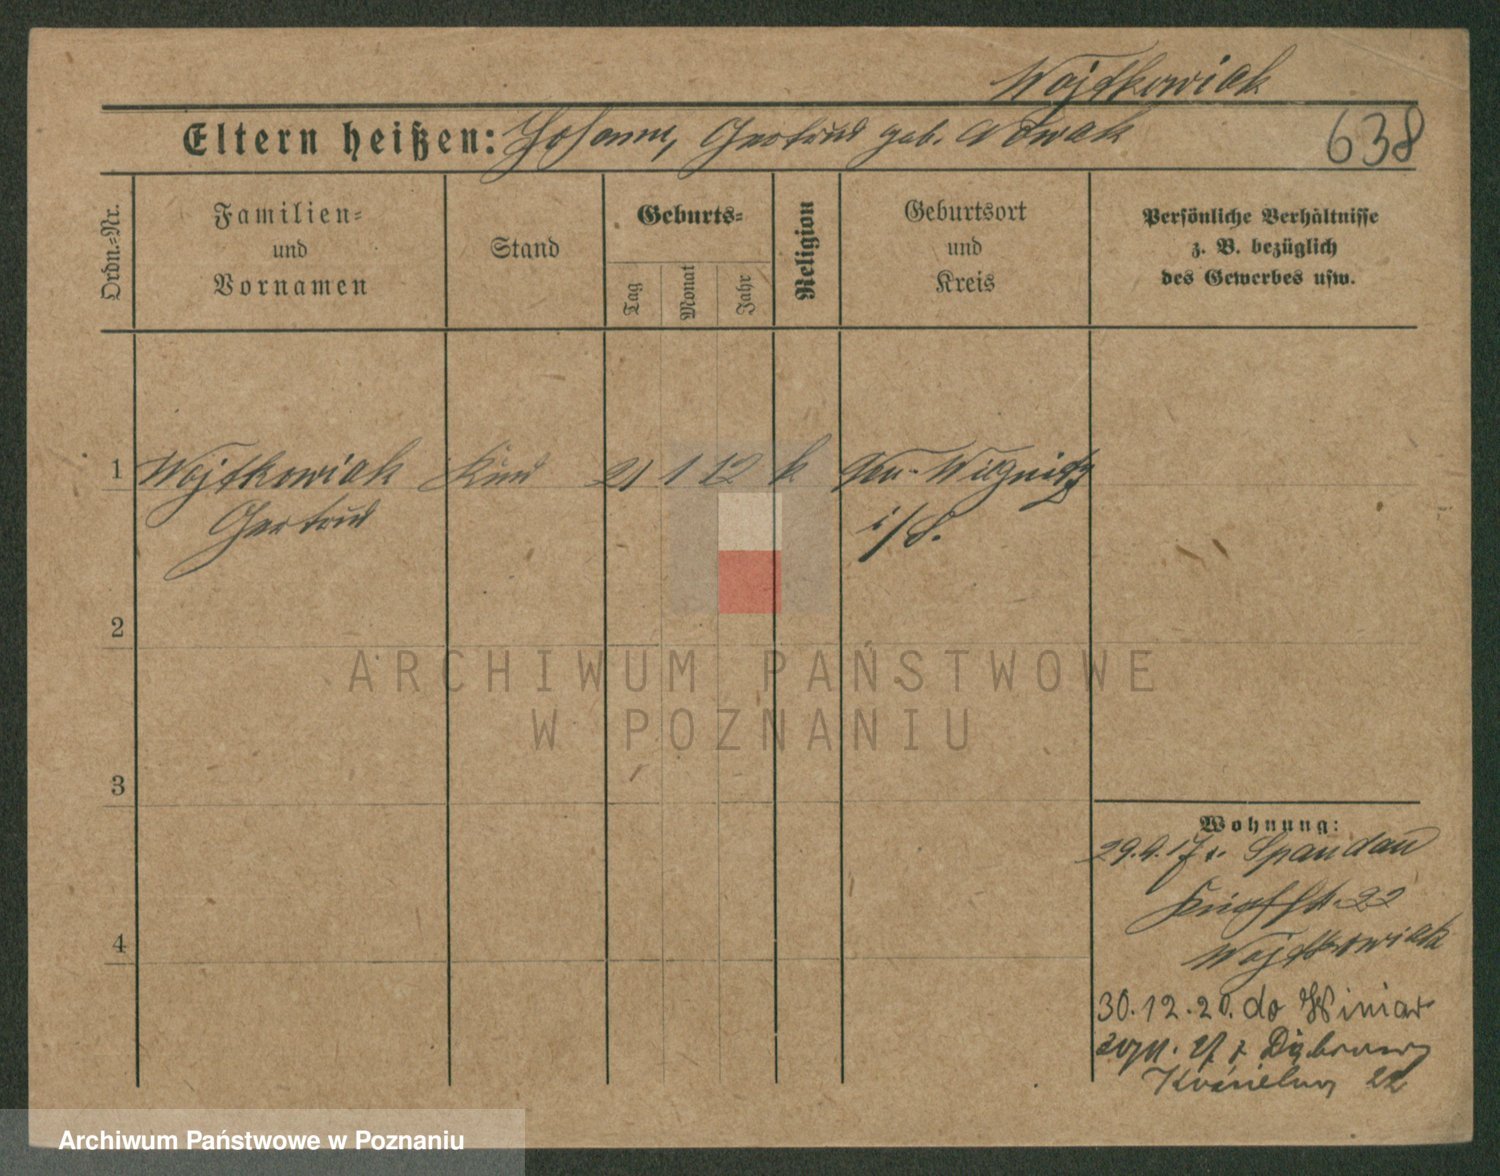 Wojtkowiak
Eltern heißen: Johann, Gertrud geb. Nowak
638
Ordn.-Nr.
Familien-
und
Vornamen
Stand
Geburts-
Tag
Monat
Jahr
Religion
Geburtsort
und
Kreis
Persönliche Verhältnisse
z. B. bezüglich
des Gewerbes usw.
1 Wojtkowiak Kind 21 1 12 k
Gertrud
i/S.
2
3
4
ARCHIWUM PAŃSTWOWE
W POZNANIU
Wohnung:
29.4.17 v. Spandau
22
Wojtkowiak
30.12.20. do Winiar
Dąbrowy
22
Archiwum Państwowe w Poznaniu